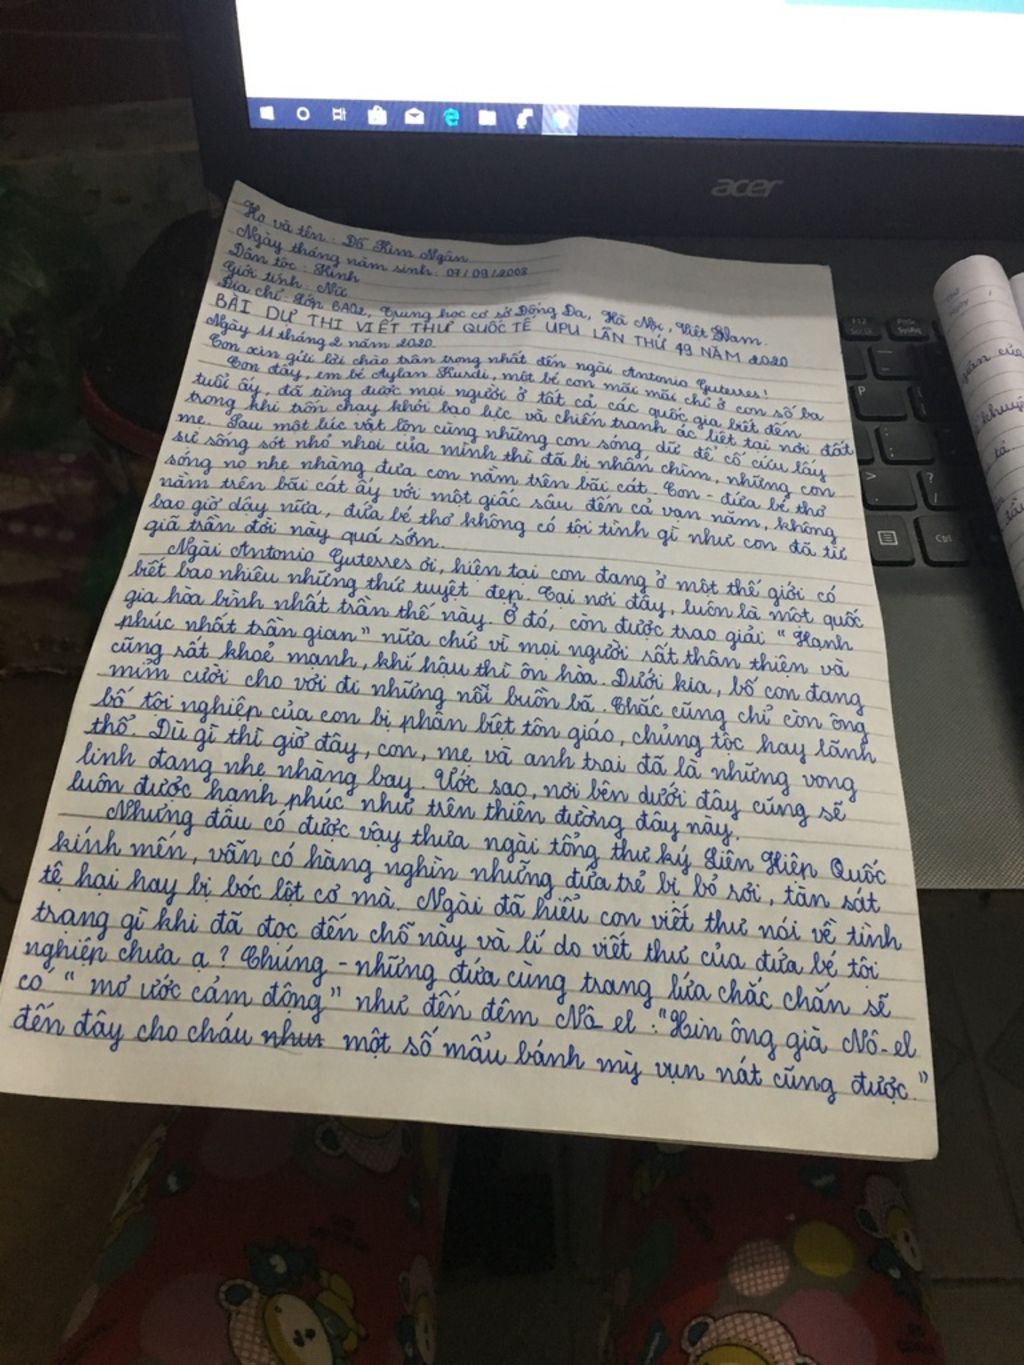 acer
Họ và tên: Đỗ Kim Ngân
Ngày tháng năm sinh: 07/09/2008
Dân tộc: Kinh
Giới tính: Nữ
Địa chỉ: Lớp 6A02, Trung học cơ sở Đống Đa, Hà Nội, Việt Nam.
BÀI DỰ THI VIẾT THƯ QUỐC TẾ UPU LẦN THỨ 49 NĂM 2020
Ngày 11 tháng 2 năm 2020
Con xin gửi lời chào trân trọng nhất đến ngài Antonio Guterres!
Con đây, em bé Aylan Kurdi, một bé con mãi mãi chỉ ở con số ba
tuổi ấy, đã từng được mọi người ở tất cả các quốc gia biết đến
trong khi trốn chạy khỏi bạo lực và chiến tranh ác liệt tại nơi đất
mẹ. Sau một lúc vật lộn cùng những con sóng dữ để cố cứu lấy
sự sống sót nhỏ nhoi của mình thì đã bị nhấn chìm, những con
sóng nọ nhẹ nhàng đưa con nằm trên bãi cát. Con - đứa bé thơ
nằm trên bãi cát ấy với một giấc sâu đến cả vạn năm, không
bao giờ dậy nữa, đứa bé thơ không có tội tình gì như con đã từ
giã trần đời này quá sớm.
Ngài Antonio Guterres ơi, hiện tại con đang ở một thế giới có
biết bao nhiêu những thứ tuyệt đẹp. Tại nơi đây, luôn là một quốc
gia hòa bình nhất trần thế này. Ở đó, còn được trao giải "Hạnh
phúc nhất trần gian" nữa chứ vì mọi người rất thân thiện và
cũng rất khoẻ mạnh, khí hậu thì ôn hòa. Dưới kia, bố con đang
mỉm cười cho vơi đi những nỗi buồn bã. Chắc cũng chỉ còn ông
bố tội nghiệp của con bị phân biệt tôn giáo, chủng tộc hay lãnh
thổ. Dù gì thì giờ đây, con, mẹ và anh trai đã là những vong
linh đang nhẹ nhàng bay. Ước sao, nơi bên dưới đây cũng sẽ
luôn được hạnh phúc như trên thiên đường đây này.
Nhưng đâu có được vậy thưa ngài tổng thư ký Liên Hiệp Quốc
kính mến, vẫn có hàng nghìn những đứa trẻ bị bỏ rơi, tàn sát
tệ hại hay bị bóc lột cơ mà. Ngài đã hiểu con viết thư nói về tình
trạng gì khi đã đọc đến chỗ này và lí do viết thư của đứa bé tội
nghiệp chưa ạ? Chúng - những đứa cùng trang lứa chắc chắn sẽ
có "mơ ước cảm động" như đến đêm Nô-el: "Xin ông già Nô-el
đến đây cho cháu như một số mẩu bánh mỳ vụn nát cũng được."